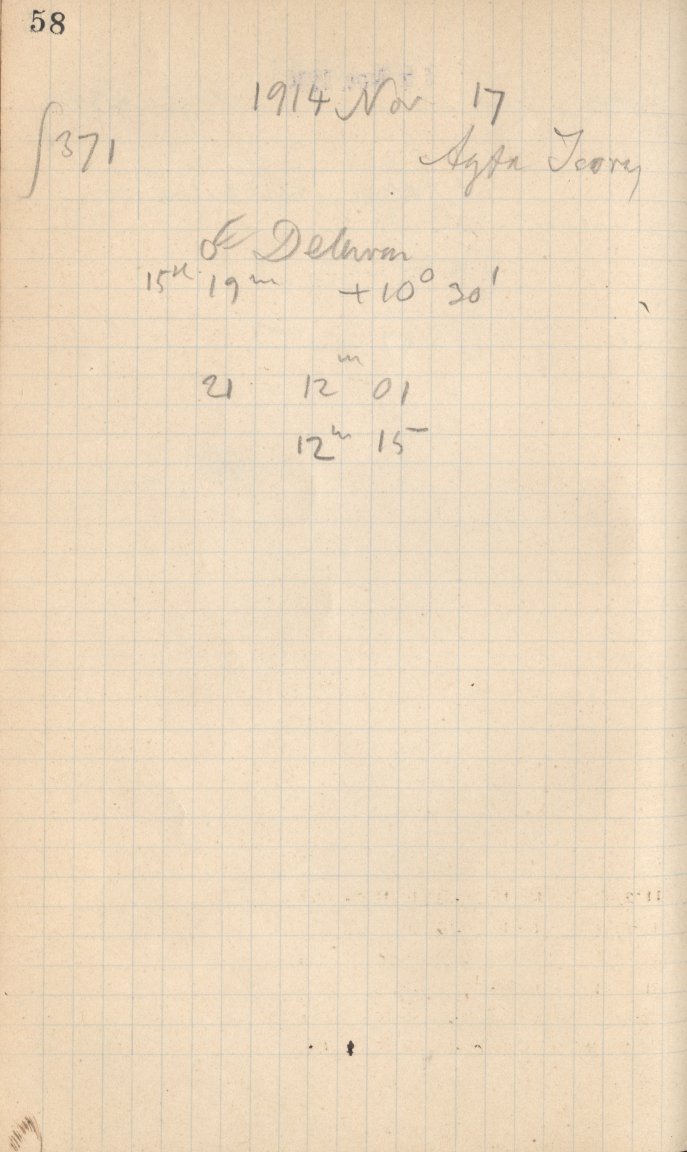 58
1914 Nov 17
∫371
Agfa Isorap
☄ Delavan
15ᴴ 19ᵐ +10° 30'
21 12ᵐ 01
12ᵐ 15